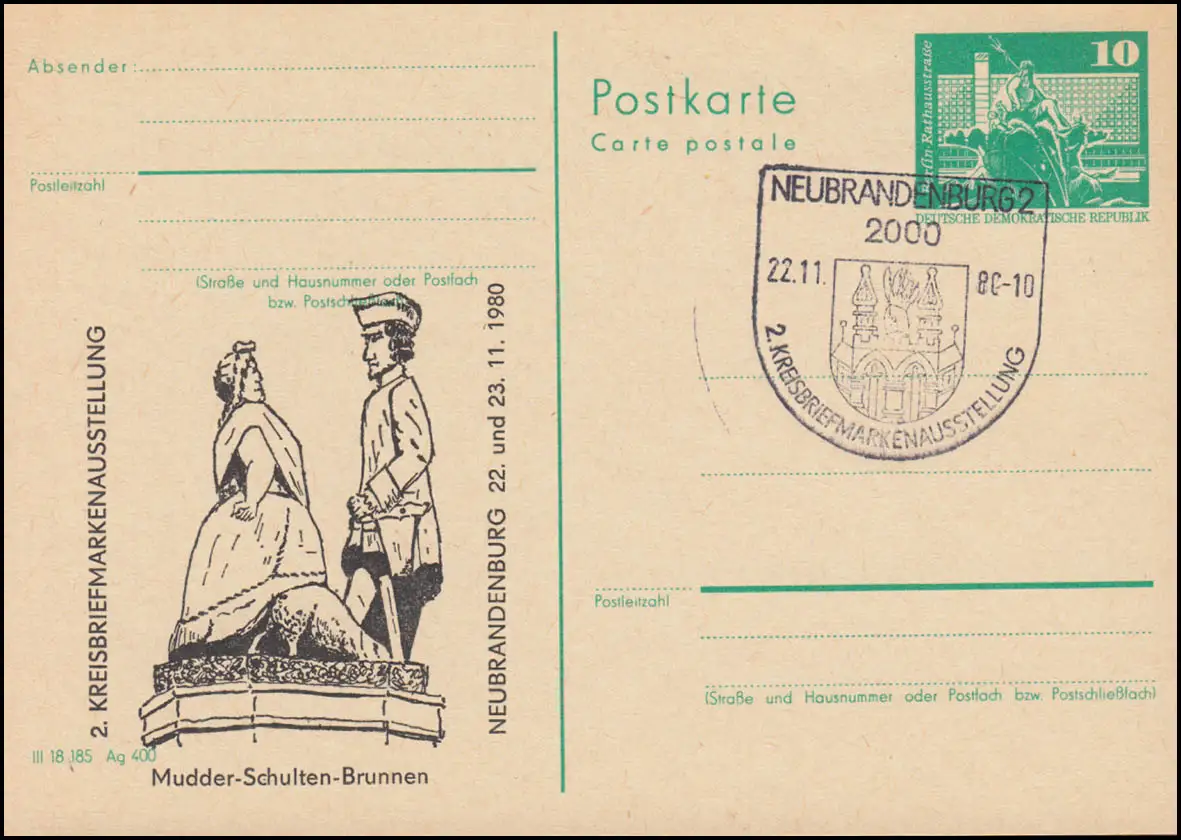 Absender:
Postleitzahl
(Straße und Hausnummer oder Postfach
bzw. Postschließfach)
2. KREISBRIEFMARKENAUSSTELLUNG
NEUBRANDENBURG 22. und 23. 11. 1980
III 18 185 Ag 400
Mudder-Schulten-Brunnen
Postkarte
Carte postale
10
Berlin-Rathausstraße
DEUTSCHE DEMOKRATISCHE REPUBLIK
NEUBRANDENBURG 2
2000
22.11. 80-10
2. KREISBRIEFMARKENAUSSTELLUNG
Postleitzahl
(Straße und Hausnummer oder Postfach bzw. Postschließfach)